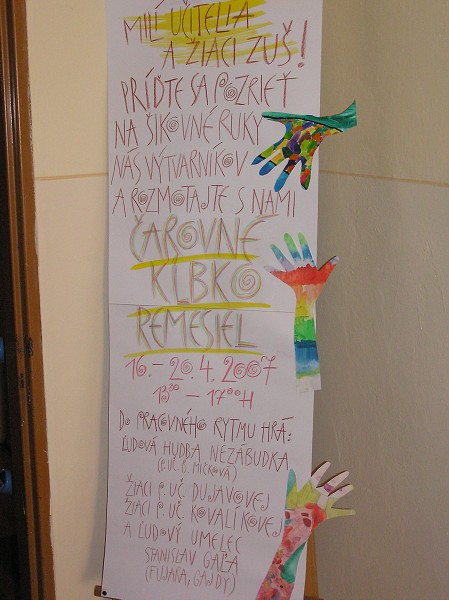 MILÍ UČITELIA
A ŽIACI ZUŠ!
PRÍĎTE SA POZRIEŤ
NA ŠIKOVNÉ RUKY
NÁS VÝTVARNÍKOV
A ROZMOTAJTE S NAMI
ČAROVNÉ
KĹBKO
REMESIEL
16.-20.4.2007
13³⁰ - 17⁰⁰H
DO PRACOVNÉHO RYTMU HRÁ:
ĽUDOVÁ HUDBA NEZÁBUDKA
(P. UČ. B. MIČKOVÁ)
ŽIACI P. UČ. DUJAVOVEJ
ŽIACI P. UČ. KOVALÍKOVEJ
A ĽUDOVÝ UMELEC
STANISLAV GAĽA
(FUJARA, GAJDY)